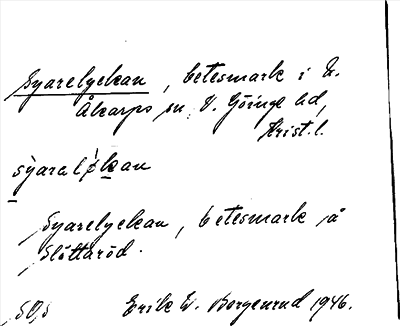 Syarelyckan, betesmark i N.
Åkarps sn, V. Göinge hd,
Krist. l.
syaralykan
Syarelyckan, betesmark på
Slättaröd.
Erik W. Borgenrud 1946.